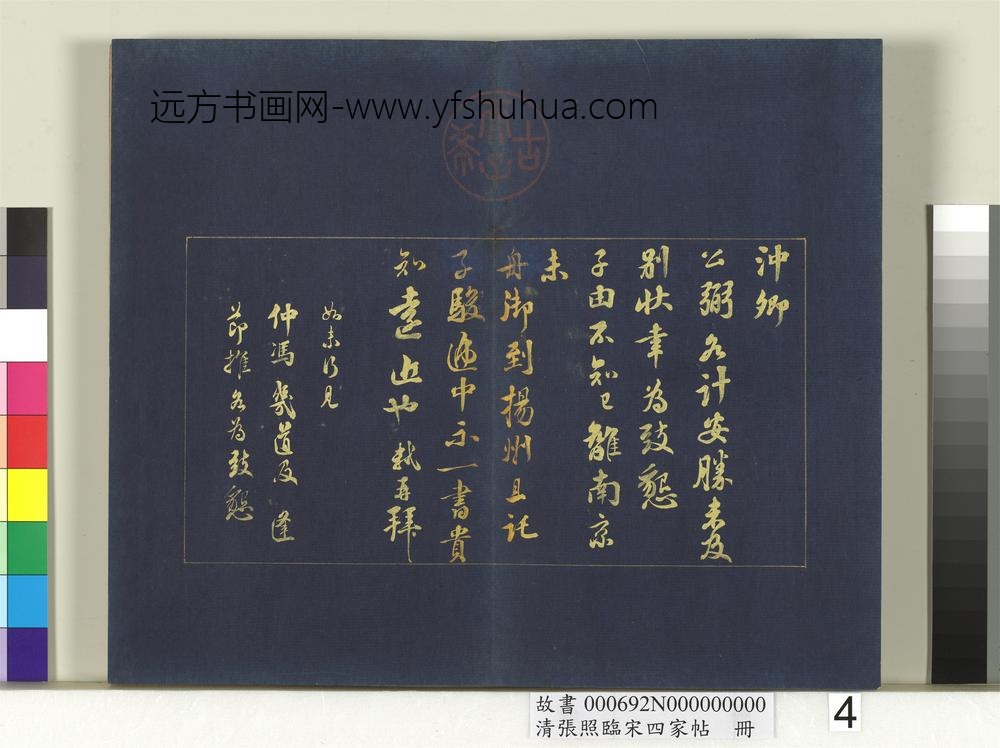 远方书画网-www.yfshuhua.com
沖卿
公弼各計安勝未及
別狀幸為致懇
子由不知已離南京
未
舟御到揚州且託
子駿遞中示一書貴
知遠近也軾再拜
如未行見
仲馮幾道及 蓬
莭推各為致懇
故書 000692N000000000
清張照臨宋四家帖 冊
4